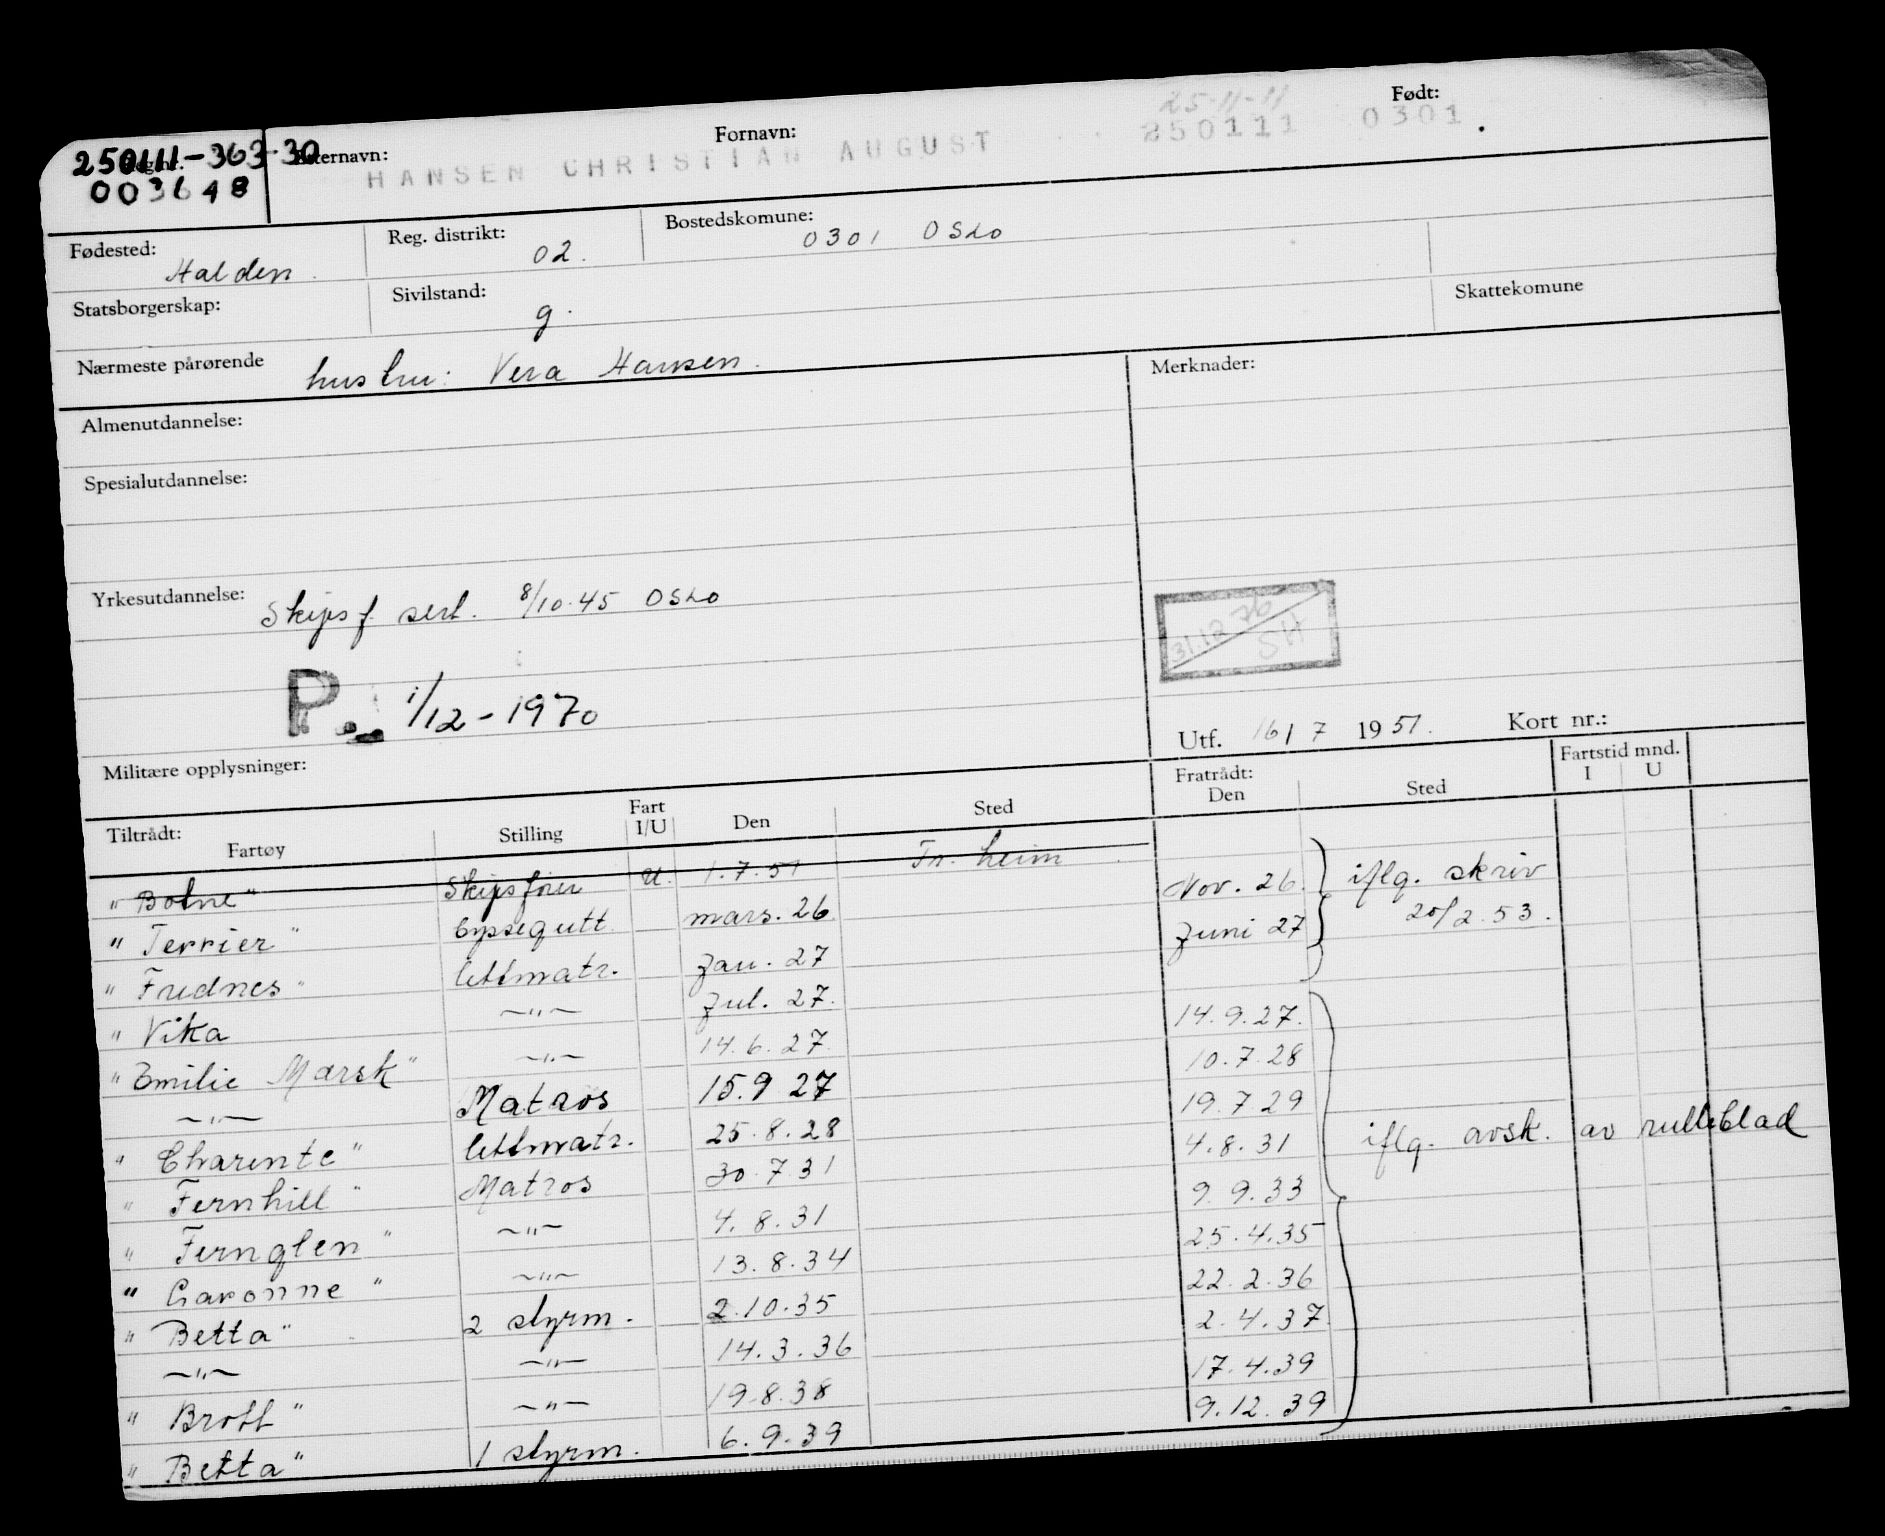 Regnr.
250111-363-30
003648
Etternavn: Fornavn: Født:
25-11-11
HANSEN CHRISTIAN AUGUST 250111 0301
Fødested: Halden. Reg. distrikt: 02. Bostedskomune: 0301 OSLO
Statsborgerskap: Sivilstand: g. Skattekomune
Nærmeste pårørende hustru: Vera Hansen.
Merknader:
Almenutdannelse:
Spesialutdannelse:
Yrkesutdannelse: Skipsf. sert. 8/10.45 OSLO
31.12 76
SH
P. 1/12-1970
Utf. 16/7 1951. Kort nr.:
Militære opplysninger:
Tiltrådt: Fratrådt: Fartstid mnd.
Fartøy Stilling Fart I/U Den Sted Den Sted I U
"Bolne" Skipsfører U. 1.7.51 Tr.heim
"Terrier" byssegutt mars.26 Nov. 26. iflg. skriv
"Frednes" lettmatr. Jan. 27 Juni 27 20/2.53.
"Vika —"— Jul. 27.
"Emilie Mærsk" —"— 14.6.27. 14.9.27.
—"— Matros 15.9 27 10.7.28
"Charente" lettmatr. 25.8.28 19.7 29
"Fernhill" Matros 30.7.31 4.8.31 iflg. avsk. av rulleblad
"Fernglen" —"— 4.8.31 9.9.33
"Garonne" —"— 13.8.34 25.4.35
"Betta" 2 styrm. 2.10.35 22.2.36
—"— —"— 14.3.36 2.4.37
"Brott" —"— 19.8.38 17.4.39
"Betta" 1 styrm. 6.9.39 9.12.39